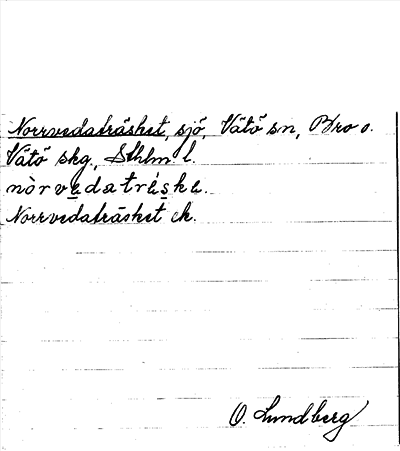 Norrvedaträsket, sjö, Vätö sn, Bro o.
Vätö skg, Sthlm l.
nòrvedatréske.
Norrvedaträsket ek.
O. Lundberg